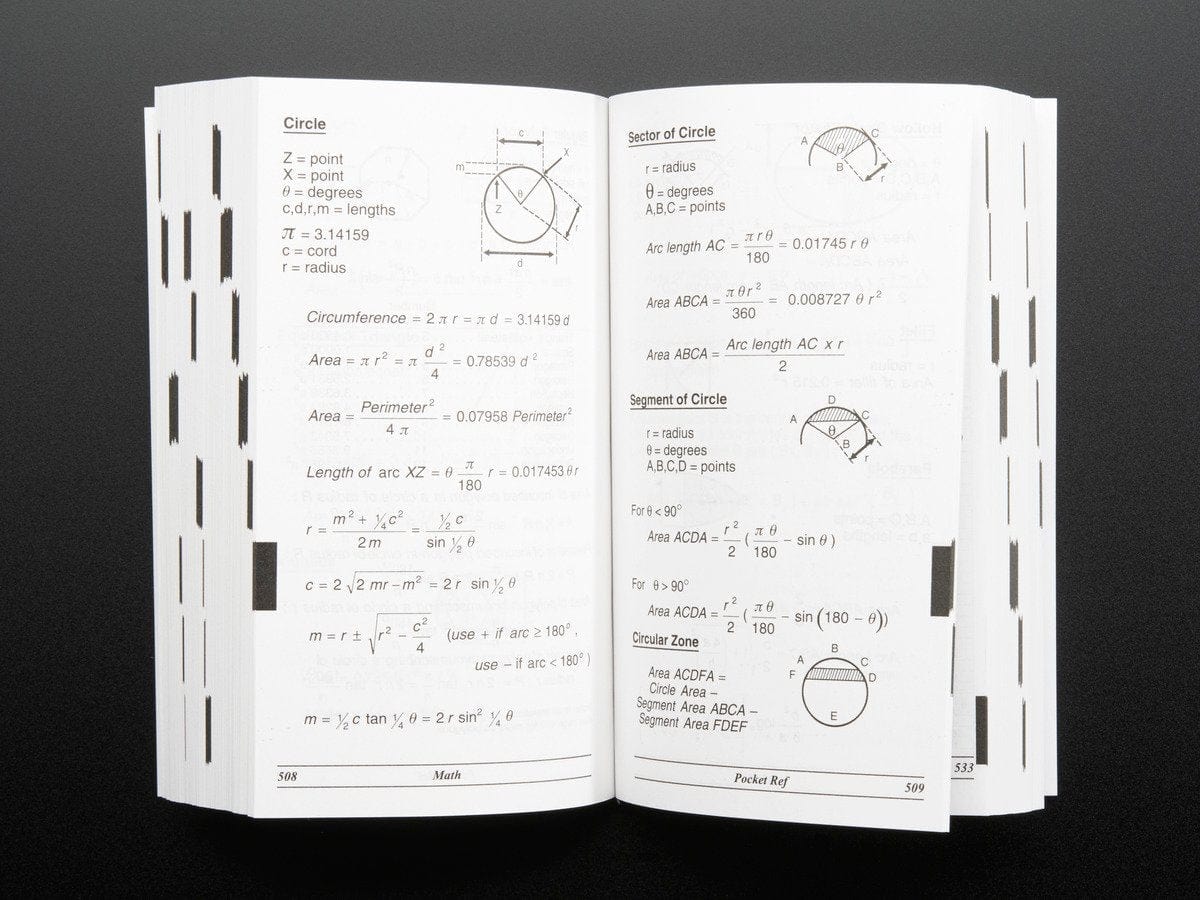 Circle
Z = point
X = point
θ = degrees
c,d,r,m = lengths
π = 3.14159
c = cord
r = radius
c
m
X
θ
Z
r
d
Circumference = 2 π r = π d = 3.14159 d
Area = π r² = π d²/4 = 0.78539 d²
Area = Perimeter²/4 π = 0.07958 Perimeter²
Length of arc XZ = θ π/180 r = 0.017453 θ r
r = (m² + ¼c²)/2 m = ½ c/sin ½ θ
c = 2 √(2 mr – m²) = 2 r sin ½ θ
m = r ± √(r² – c²/4) (use + if arc ≥ 180°,
use – if arc < 180°)
m = ½ c tan ¼ θ = 2 r sin² ¼ θ
508 Math
Sector of Circle
r = radius
θ = degrees
A,B,C = points
A
C
θ
B
r
Arc length AC = π r θ/180 = 0.01745 r θ
Area ABCA = π θ r²/360 = 0.008727 θ r²
Area ABCA = Arc length AC x r/2
Segment of Circle
r = radius
θ = degrees
A,B,C,D = points
D
A
C
θ
B
r
For θ < 90°
Area ACDA = r²/2 (π θ/180 – sin θ)
For θ > 90°
Area ACDA = r²/2 (π θ/180 – sin (180 – θ))
Circular Zone
Area ACDFA =
Circle Area –
Segment Area ABCA –
Segment Area FDEF
B
A
C
F
D
E
Pocket Ref 509
533